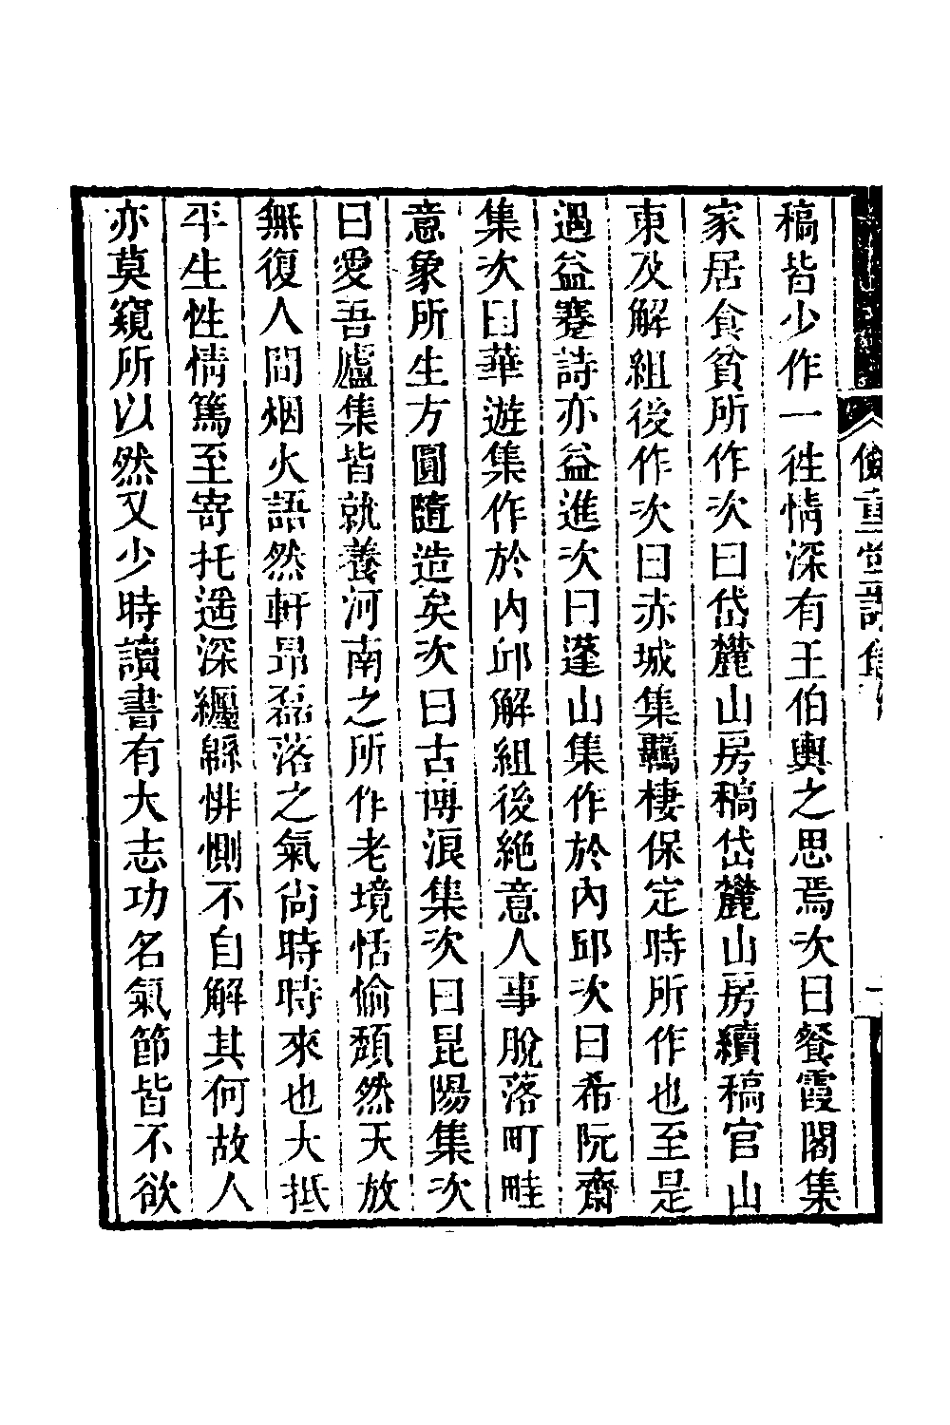 稿皆少作一往情深有王伯輿之思焉次曰餐霞閣集
家居食貧所作次曰岱麓山房稿岱麓山房續稿官山
東及解組後作次曰赤城集羈棲保定時所作也至是
遇益蹇詩亦益進次曰蓬山集作於內邱次曰希阮齋
集次曰華遊集作於內邱解組後絶意人事脫落町畦
意象所生方圓隨造矣次曰古博浪集次曰昆陽集次
曰愛吾廬集皆就養河南之所作老境恬愉頹然天放
無復人間烟火語然軒昂磊落之氣尙時時來也大抵
平生性情篤至寄托遥深纒緜悱惻不自解其何故人
亦莫窺所以然又少時讀書有大志功名氣節皆不欲